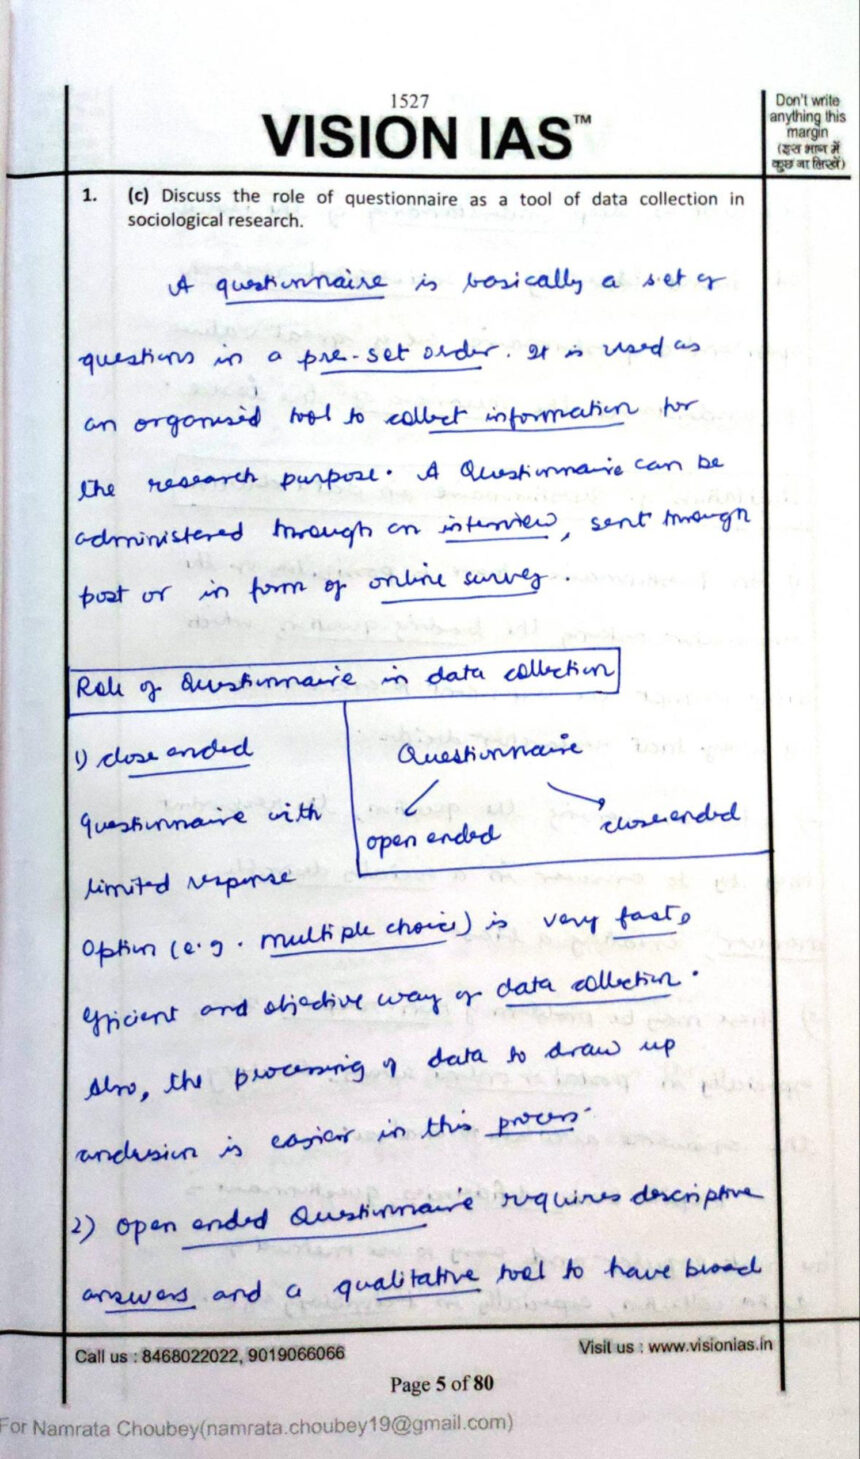 1527
VISION IAS™
Don't write
anything this
margin
(इस भाग में
कुछ ना लिखें)
1. (c) Discuss the role of questionnaire as a tool of data collection in
sociological research.
A questionnaire is basically a set of
questions in a pre-set order. It is used as
an organised tool to collect information for
the research purpose. A Questionnaire can be
administered through an interview, sent through
post or in form of online survey.
Role of Questionnaire in data collection
1) close ended
Questionnaire with
limited response
Questionnaire
open ended
close ended
option (e.g. multiple choice) is very fast,
efficient and objective way of data collection.
Also, the processing of data to draw up
conclusion is easier in this process.
2) open ended Questionnaire requires descriptive
answers and a qualitative tool to have broad
Call us : 8468022022, 9019066066
Visit us : www.visionias.in
Page 5 of 80
For Namrata Choubey(namrata.choubey19@gmail.com)